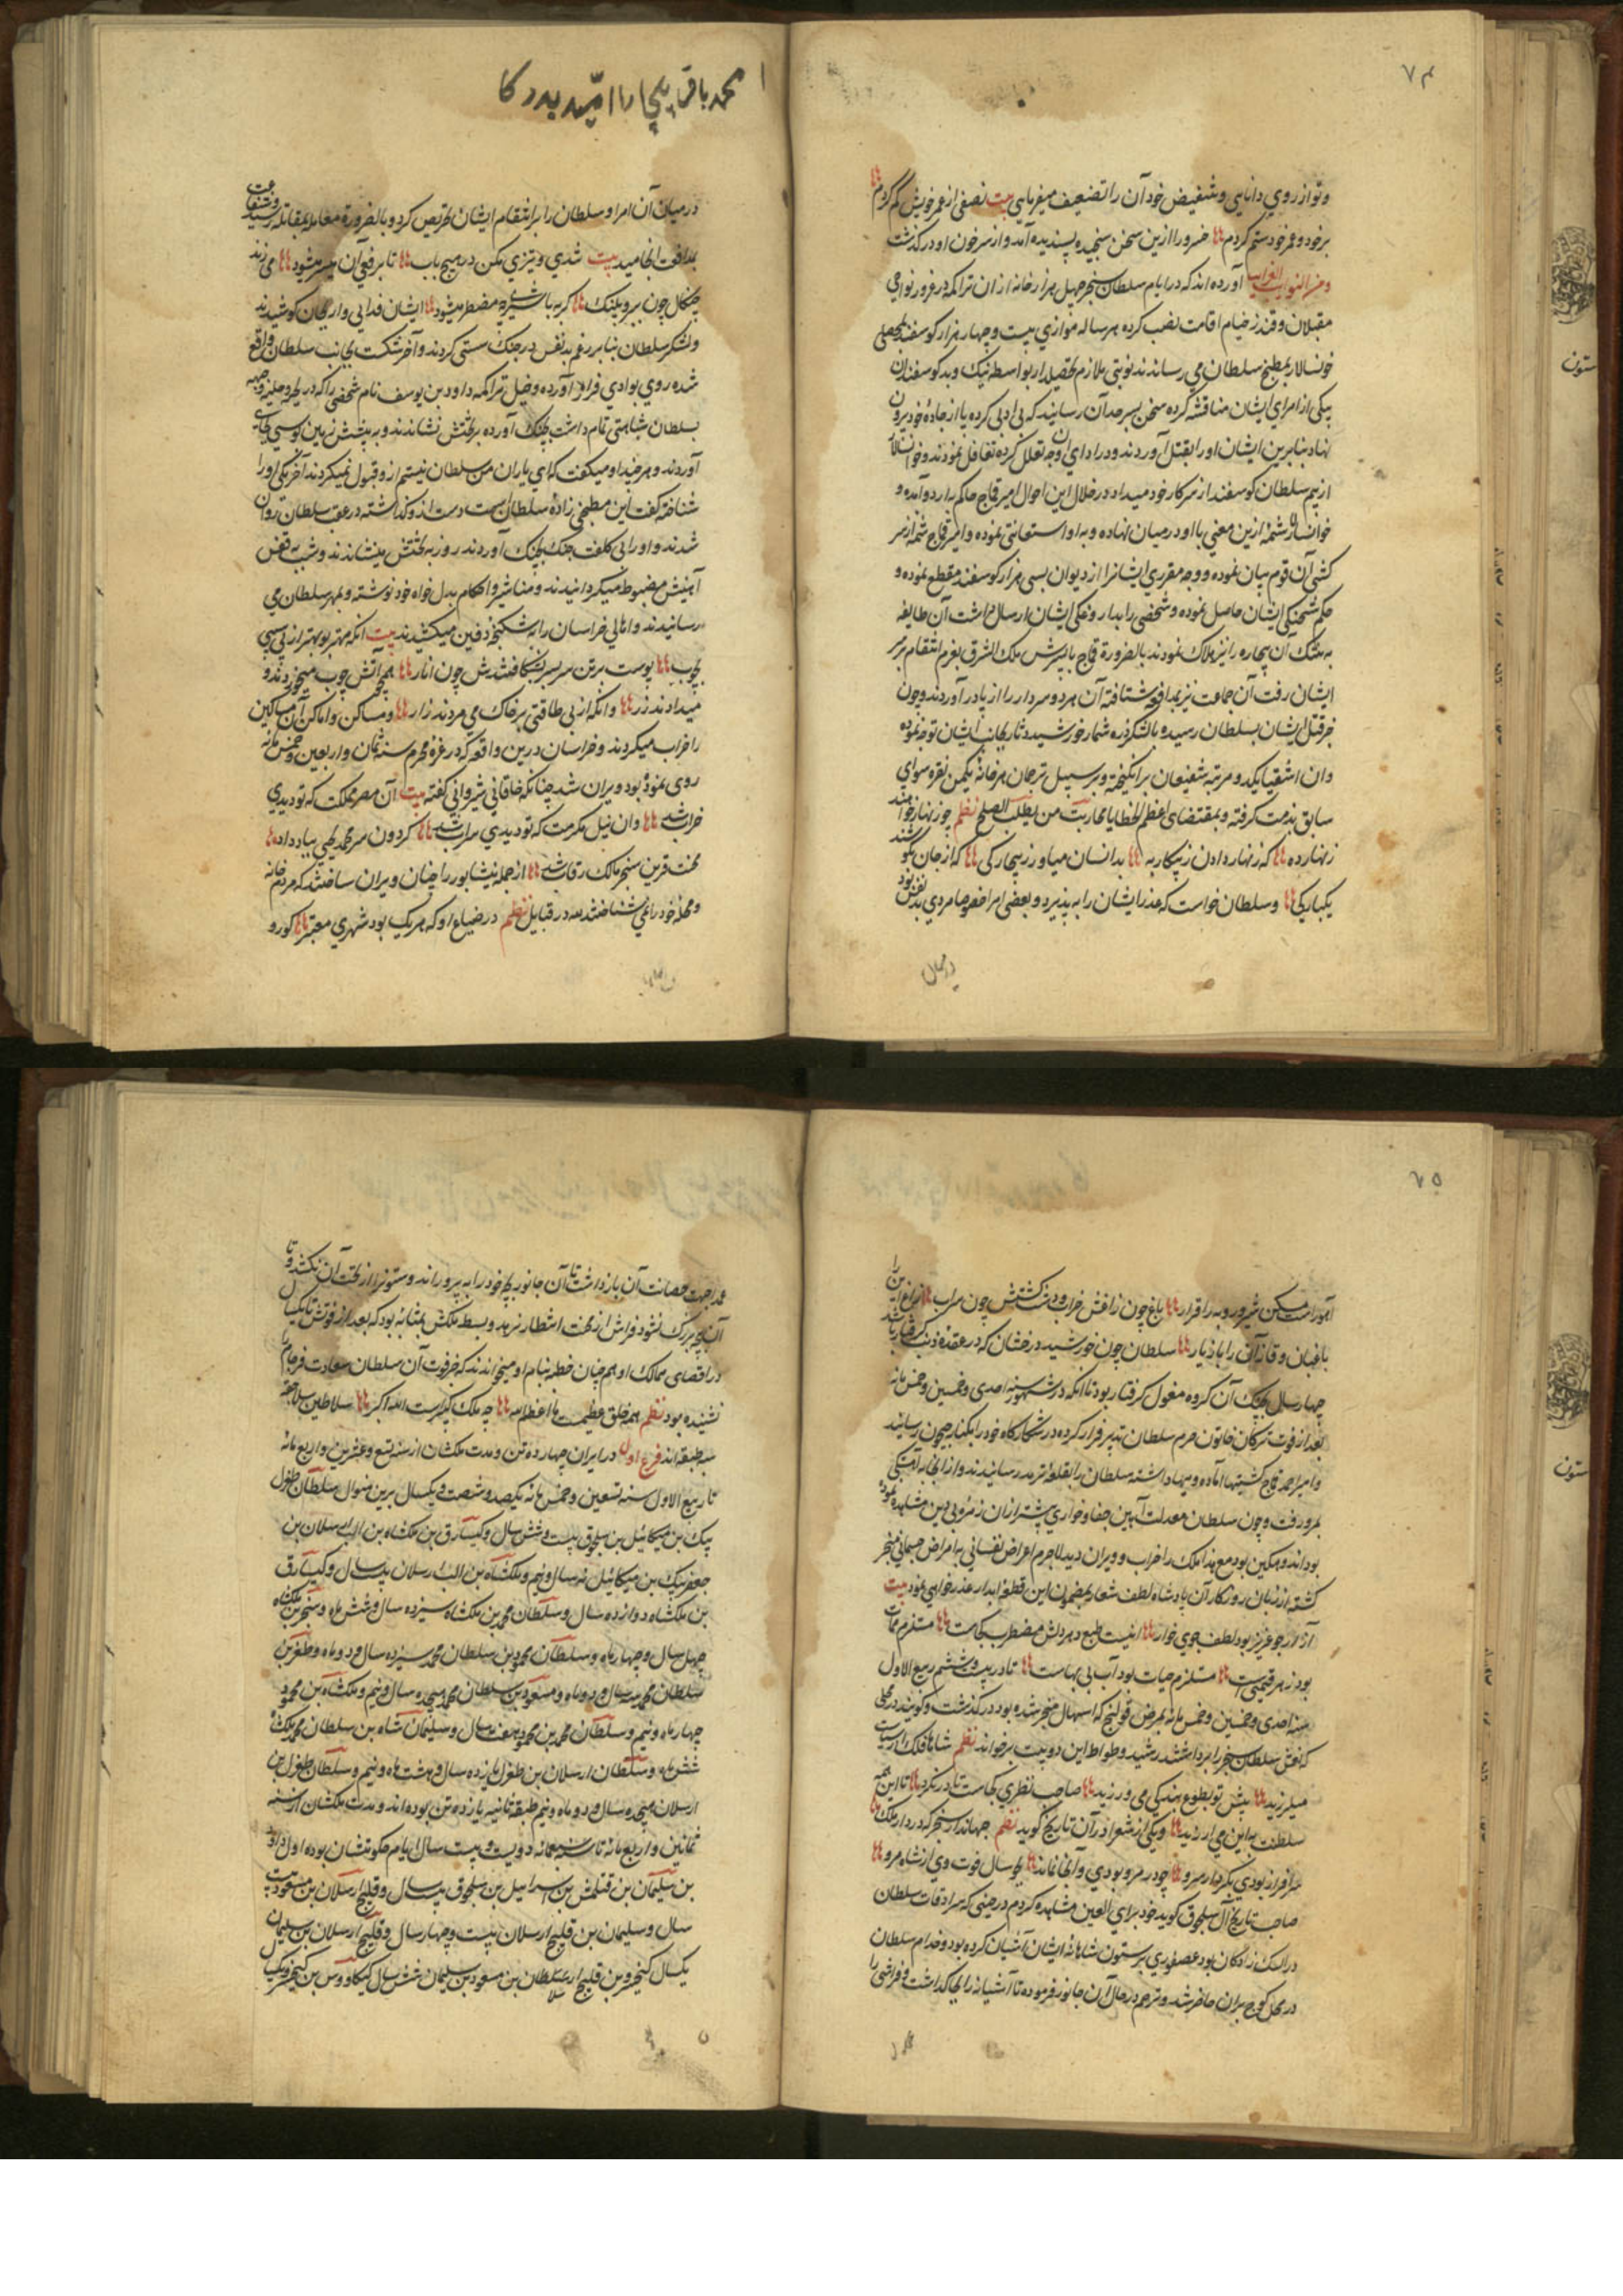 ۷۴
و تو از روی دانایی و شخیص خود آن را تضعیف میفرمایی بیت نصفی از عمر خویش کم کردم
بر خود و عمر خود ستم کردم خسرو را ازین سخن سنجیده پسندیده آمد و از سر خون او در گذشت
آورده اند که در ایام سلطان سنجر چهل هزار خانه از ان تراکمه در نواحی
ختلان و قندز خیام اقامت نصب کرده هر ساله موازی بیست و چهار هزار کوسفند
خوانسالار بمطبخ سلطان می رساندند نوبتی ملازم تحصیلدار بواسطه نیک و بد کوسفندان
بیکی از امرای ایشان مناقشه کرده سخن بسرحد آن رسانید که بی ادبی کرده پا از جاده خود بیرون
نهاد بنابرین ایشان او را بقتل آوردند و در ادای آن وجه تعلل کرده تغافل نمودند و خوانسالار
از بیم سلطان کوسفند از سرکار خود میداد در خلال این احوال امیر قماج حاکم بدار و آمده و
خوانسالار شمه ازین معنی با او در میان نهاده و به او استعانتی نموده و امیر قماج شمه از سر
کشی آن قوم بیان نموده و وجه مقرری ایشانرا از دیوان بسی هزار کوسفند مقطع نموده و
حکم شحنکی ایشان حاصل نموده و شخصی را بداروغکی ایشان ارسال داشت آن طایفه
آن بیچاره را نیز هلاک نمودند بالضرورة قماج با پسرش ملک الشرق بعزم انتقام بر سر
ایشان رفت آن جماعت نیز بمدافعه شتافته آن هر دو سردار را از پا در آوردند و چون
خبر قتل ایشان بسلطان رسید با لشکر ذره شمار خورشید آثار بجانب ایشان توجه نموده
و ان اشقیا یکدو مرتبه شفیعان برانکیخته و بر سبیل ترجمان هر خانه یکمن نقره سوای
سابق بذمت کرفته و بمقتضای اعظم الخطایا محاربت من یطلب الصلح نظم چو زنهار خواهند
زنهار ده که زنهار دادن ز پیکار به بدانسان میاور ز بیچارکی که از جان بکوشند
یکبارکی و سلطان خواست که عذر ایشان را به پذیرد و بعضی امرا
در میان
محمد باقر
در میان آن امرا و سلطان را بر انتقام ایشان تحریص کرد و بالضرورة معامله بمقابله رسید
بمدافعت انجامید بیت تندی و تیزی مکن در هیچ باب تا برفق آن میسر میشود می زند
چنکال چون ببر و پلنک کربه با شیر چو مضطر میشود ایشان فدایی وار بجان کوشیدند
و لشکر سلطان بنابر رغم بدنفس در جنک سستی کردند و آخر شکست بجانب سلطان واقع
شده روی بوادی فرار آورده و خیل تراکمه داود بن یوسف نام شخصی را که در
بسلطان شباهتی تمام داشت بچنک آورده بر تختش نشاندند و به پیشش زمین بوسی بجای
آوردند و هر چند او میکفت که ای یاران من سلطان نیستم ازو قبول نمیکردند آخر یکی او را
شناخته کفت این مطبخی زاده سلطان است دست ازو کذاشته در عقب سلطان روان
شدند و او را بی کلفت جنک بچنک آوردند روز به تختش مینشاندند و شب به قفس
آهنیش مضبوط میکردانیدند و مناشیر و احکام بدل خواه خود نوشته و بمهر سلطان می
رسانیدند و اهالی خراسان را به شکنجه دفین میکشیدند بیت
بچوب پوست بر تن سر بسر بشکافتندش چون انار همچو آتش چوب میخوردند و
میدادند زر و انکه از بی طاقتی بر خاک می مردند زار و مساکن و اماکن آن مساکین
را خراب میکردند و خراسان درین واقعه که در غره محرم سنه ثمان و اربعین و خمسمائه
روی نموده بود ویران شد چنانکه خاقانی شیروانی کفته بیت آن مصر مملکت که تو دیدی
خراب شد و ان نیل مکرمت که تو دیدی سراب شد کردون سر محمد یحیی بباد داد
محنت قرین سنجر مالک رقاب شد از جمله نیشابور را چنان ویران ساختند که مردم خانه
و محله خود را نمی شناختند نظم در ضیاع او که هر یک بود شهری معتبر
۷۵
باغ چون زاغش خراب و دشت کشتش چون سراب
باغبان و قاز آن را سلطان چون خورشید درخشان که در عقده ذنب گرفتار باشد
چهار سال بچنک آن کروه مغول کرفتار بود تا آنکه در شهور سنه احدی و خمسین و خمسمائه
بعد از فوت ترکان خاتون حرم سلطان تدبیر فرار کرده در شکارکاه خود را بکنار جیحون رسانید
و امیر احمد قماج کشتیها آماده و مهیا داشته سلطان را بقلعه ترمد رسانیدند و از انجا به آهستکی
بمرو رفت و چون سلطان معدلت آیین جفا و خواری بیشتر از ان
بود اندوهکین بود مع هذا ملک را خراب و ویران دید لاجرم اعراض نفسانی به امراض جسمانی منجر
کشته از زبان روزکار آن پادشاه لطف شعار بمضمون این قطعه ابدار عذر خواهی نمود بیت
بود زهر مستلزم حیات بود آب بی بهاست تا در بیست و ششم ربیع الاول
سنه احدی و خمسین و خمسمائه بمرض قولنج که به اسهال منجر شده بود در کذشت و کویند در محلی
که نعش سلطان سنجر را برداشتند رشید وطواط این دو بیت بر خواند نظم شاها فلک از سیاست
میلرزید پیش تو بطوع بندکی می ورزید صاحب نظری کجاست تا در نکرد تا این همه
سلطنت به این می ارزید و یکی از شعرا در آن تاریخ کوید نظم جهاندار سنجر که در دار ملک
سرافراز بودی بکردار سرو چو در مرو بودی و آنجا نماند بجو سال فوت وی از شاه مرو
صاحب تاریخ آل سلجوق کوید خود برای العین مشاهده کردم در حینی که سرادقات سلطان
در رادکان بود عصفوری بر ستون شاهانه ایشان آشیان کرده بود و خدام سلطان
در محل کوچ بران حاضر شد و ترحم در حال آن جانور فرموده تا آشیانه را بجا کذاشت و فراشی را
بجهت حضانت آن بازداشت تا آن جانور بچه خود را به پروراند و ستون را از تحت آن نکشد و تا
آن بچه بزرک نشود فراش از محنت انتظار نرهد و بسط ملکش بمثابه بود که بعد از فوتش تا یکسال
در اقصای ممالک او همچنان خطبه بنام او میخواندند که خبر فوت آن سلطان سعادت فرجام را
نشنیده بود نظم همه خلق چه ملک کبیر است الله اکبر سلاطین سلاجقه
سه طبقه اند فرع اول در ایران چهارده تن و مدت ملکشان از سنه تسع و عشرین و اربعمائه
تا ربیع الاول سنه تسعین و خمسمائه یکصد و شصت و یکسال برین منوال سلطان طغرل
بیک بن میکائیل بن سلجوق بیست و شش سال
جعفر بیک بن میکائیل نه سال و نیم و ملکشاه بن الب ارسلان بیست سال و
بن ملکشاه دوازده سال و سلطان محمد بن ملکشاه سیزده سال و شش ماه و سنجر بن ملکشاه
چهل سال و چهار ماه و سلطان محمود بن سلطان محمد سیزده سال و دو ماه و طغرل بن
سلطان محمد سه سال و دو ماه و مسعود بن سلطان محمد هیجده سال و نیم و ملکشاه بن محمود
چهار ماه و نیم و سلطان محمد بن محمود هفت سال و سلیمان شاه بن سلطان محمد ملکشاه
شش ماه و سلطان ارسلان بن طغرل پانزده سال و هشت ماه و نیم و سلطان طغرل بن
ارسلان هیجده سال و دو ماه و نیم طبقه ثانیه یازده تن بوده اند و مدت ملکشان از سنه
ثمانین و اربعمائه تا سنه سبعمائه دویست و بیست سال ایام حکومتشان بوده اول داود
بن سلیمان بن قتلمش بن اسرائیل بن سلجوق بیست سال و قلیج ارسلان بن مسعود بیست
سال و سلیمان بن قلیج ارسلان بیست و چهار سال و قلیج ارسلان بن سلیمان
یکسال کیخسرو بن قلیج ارسلان شش سال کیکاووس بن کیخسرو یکسال
ستون
ستون